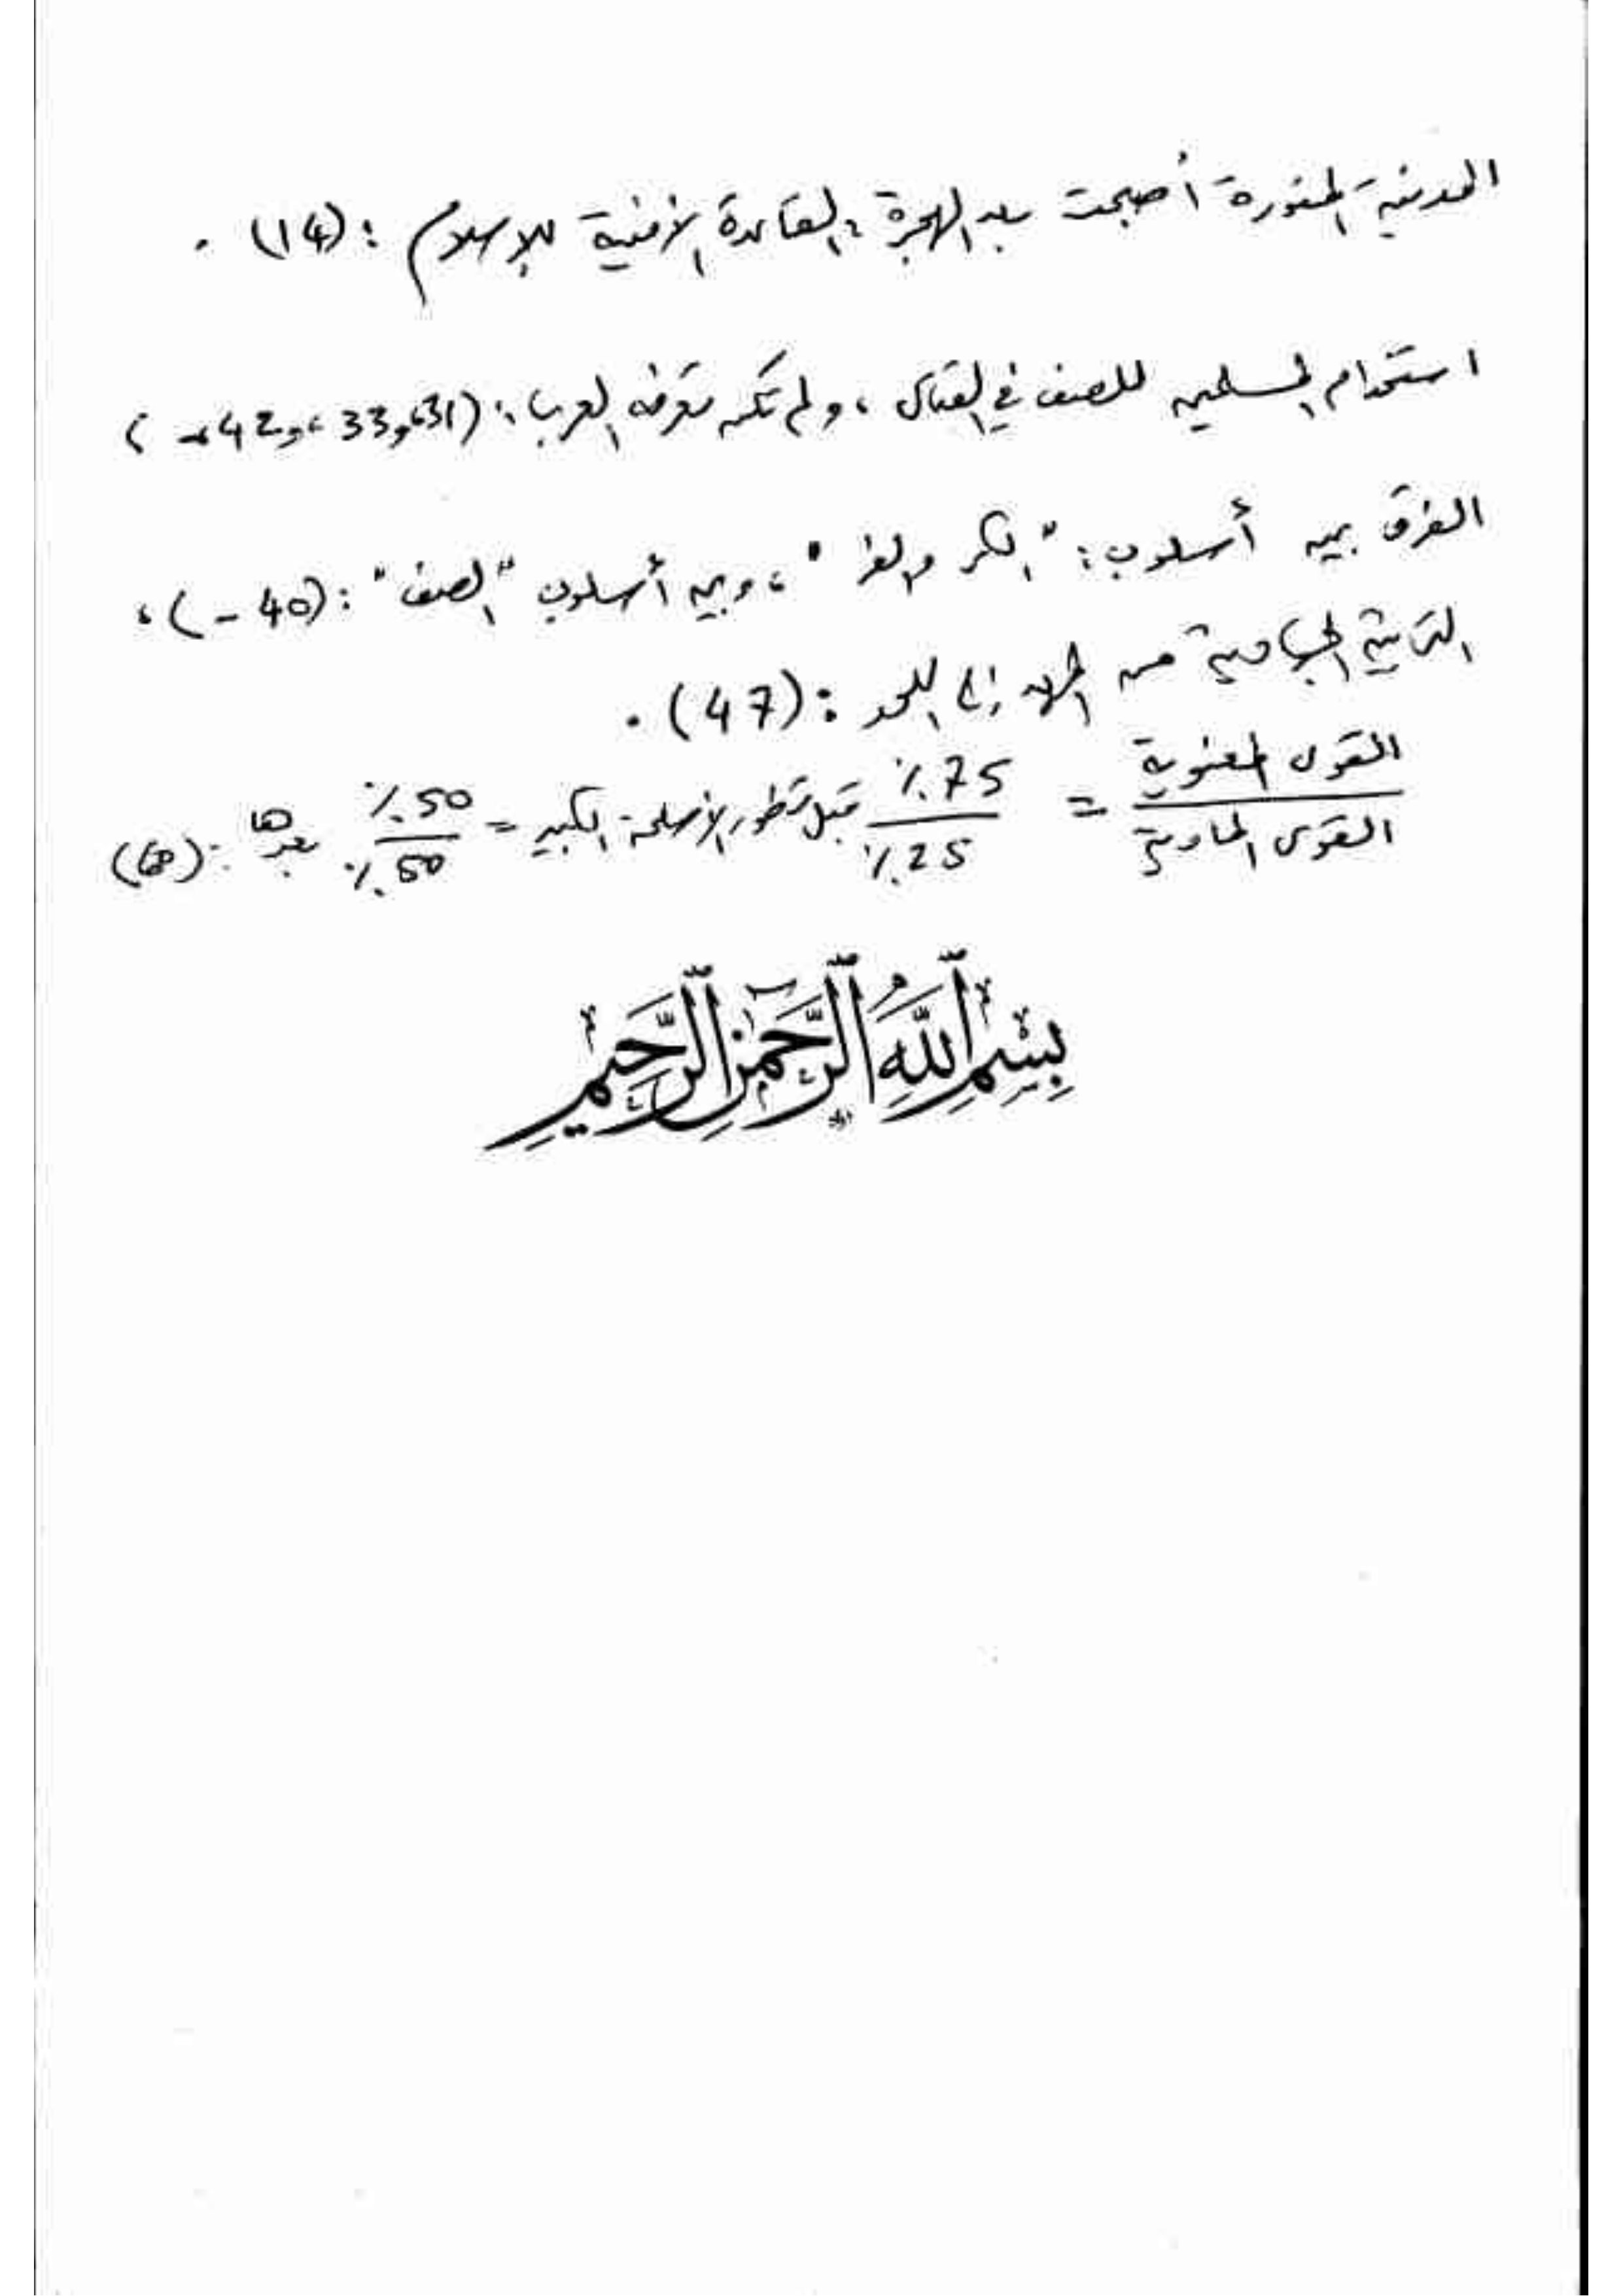 المدينة المنورة أصبحت بعد الهجرة القاعدة الأمنية للإسلام : (14) .
استخدام المسلمين للصف في القتال ، ولم تكن تعرفه العرب : (31، و33 ، و42 -) ،
الفرق بين أسلوب : "الكر والفر" ، وبين أسلوب "الصف" : (40 -) ،
التربية الجهادية من المهد إلى اللحد : (47) .
القوى المعنوية / القوى المادية = 75٪ / 25٪ قبل تطور الأسلحة الكبير = 50٪ / 50٪ بعدها : (60)
بِسْمِ ٱللَّهِ ٱلرَّحْمَٰنِ ٱلرَّحِيمِ